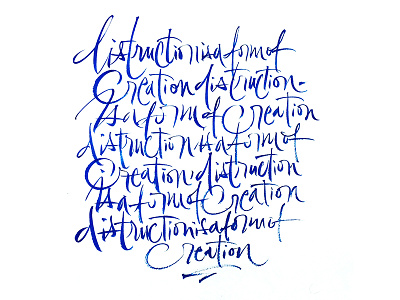 distructionisaformof
Creationdistruction-
isaformofCreation
distructionisaformof
Creation,distruction
isaformofCreation
distructionisaformof
Creation